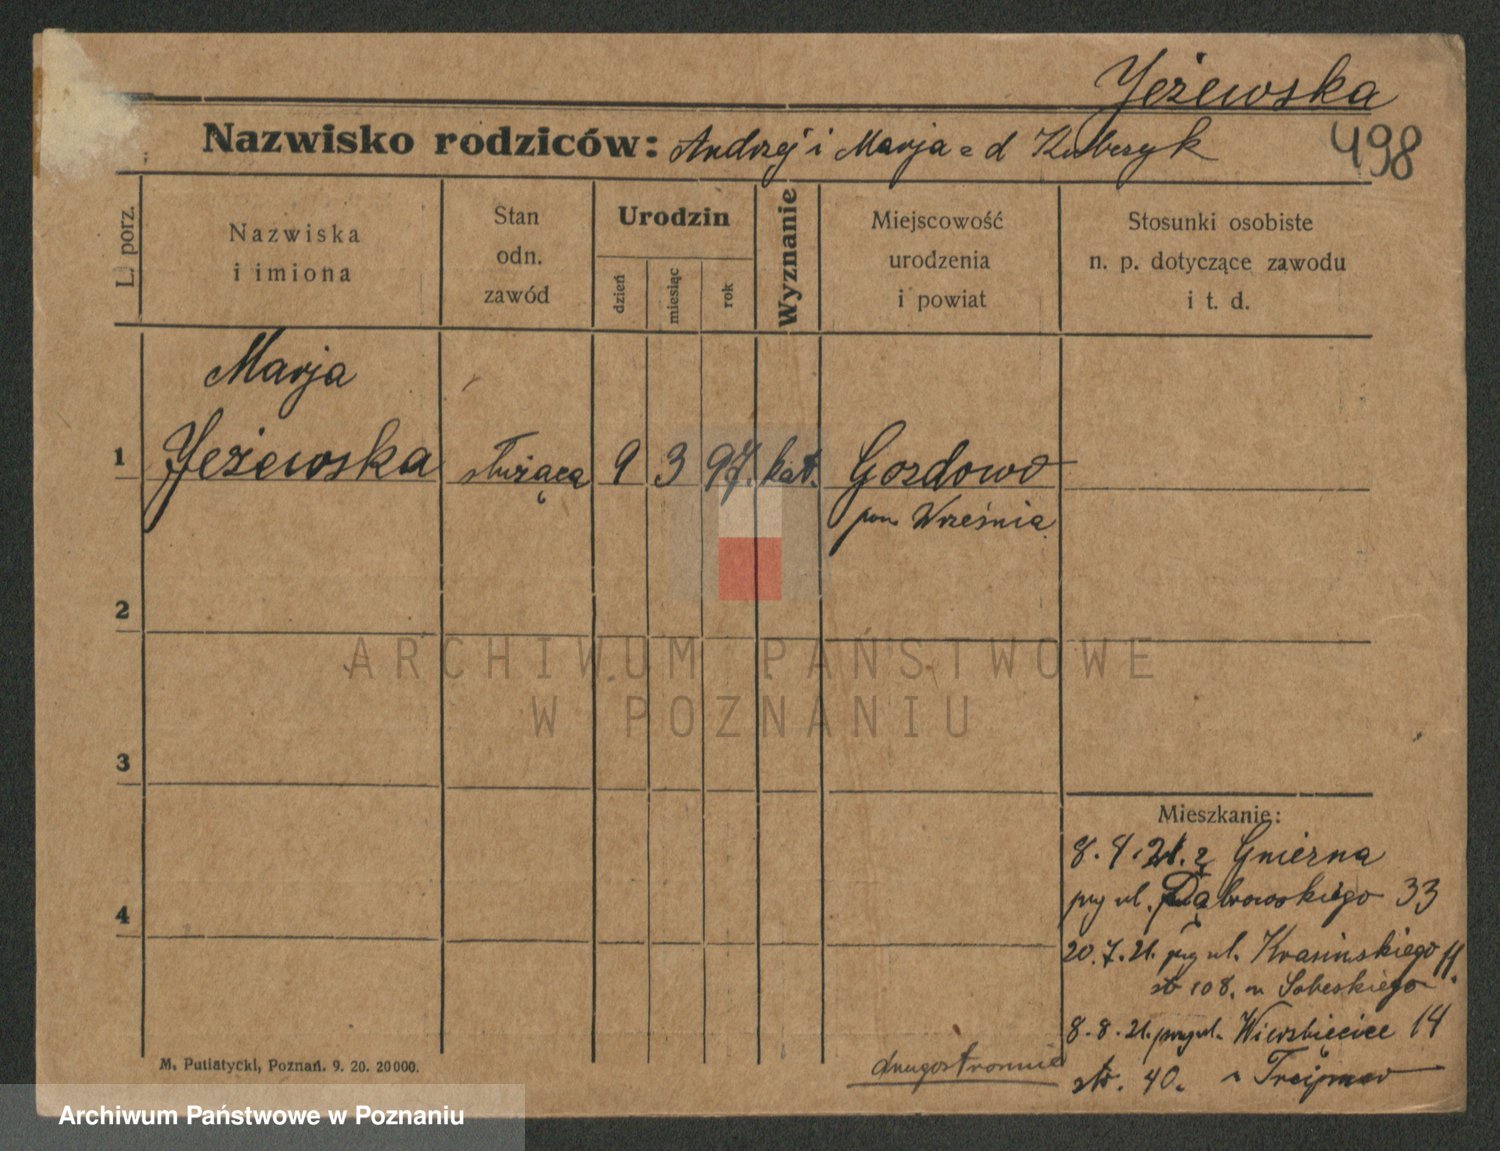 Jeżewska
Nazwisko rodziców: Andrzej i Marja z d Kubczyk
498
L. porz.
Nazwiska
i imiona
Stan
odn.
zawód
Urodzin
dzień
miesiąc
rok
Wyznanie
Miejscowość
urodzenia
i powiat
Stosunki osobiste
n. p. dotyczące zawodu
i t. d.
Marja
1 Jeżewska służąca 9 3 97. kat. Gozdowo
pow Września
2
ARCHIWUM PAŃSTWOWE
W POZNANIU
3
Mieszkanie:
8.4.21. z Gniezna
4
prz ul. Dąbrowskiego 33
20.7.21. prz ul. Krasińskiego 11.
str 108. Sobeskiego
8.8.21. przy ul. Wierzbięcice 14
str. 40.
M. Putiatycki, Poznań. 9. 20. 20000.
druga stronie
Archiwum Państwowe w Poznaniu